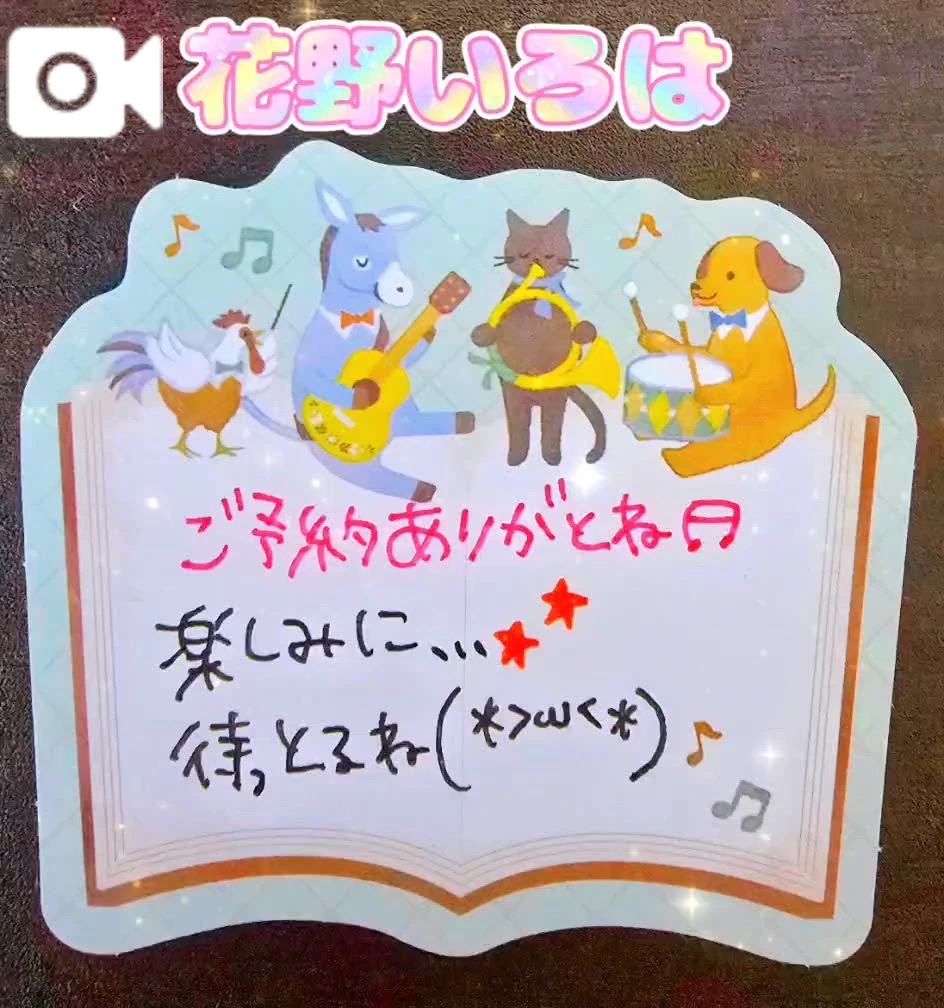 花野いろは
ご予約ありがとね♬
楽しみに、、、★★
待っとるね(*>ω<*)